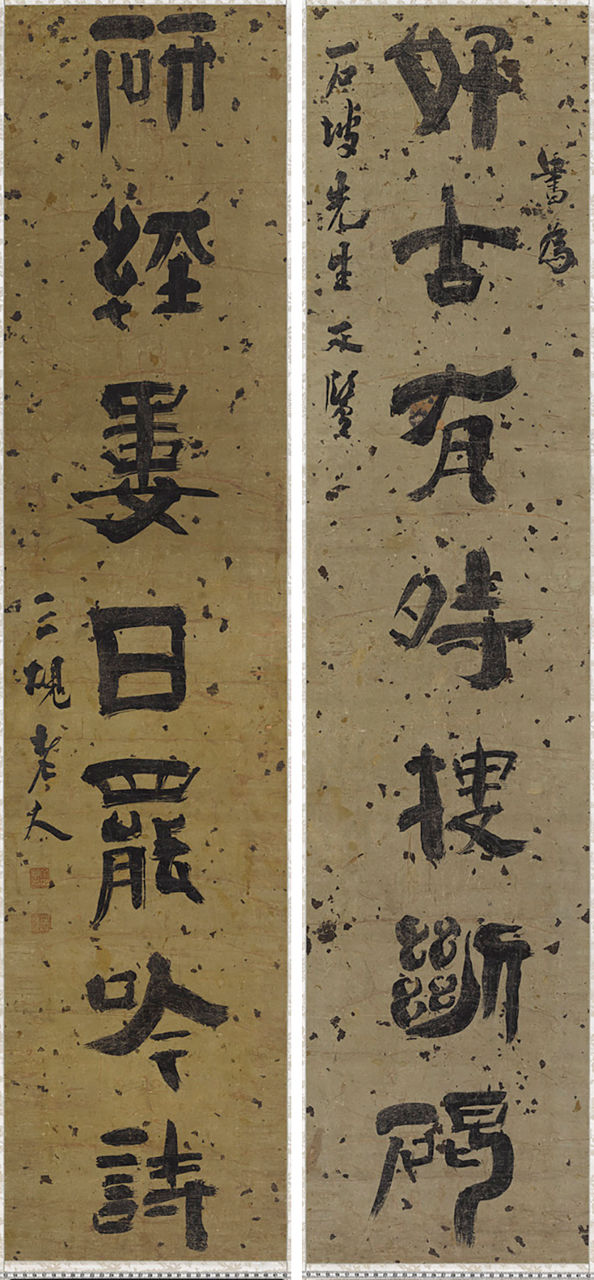 書為
好古有時搜斷碣
石坡先生正鑒
研經婁日罷吟詩
三硯老夫